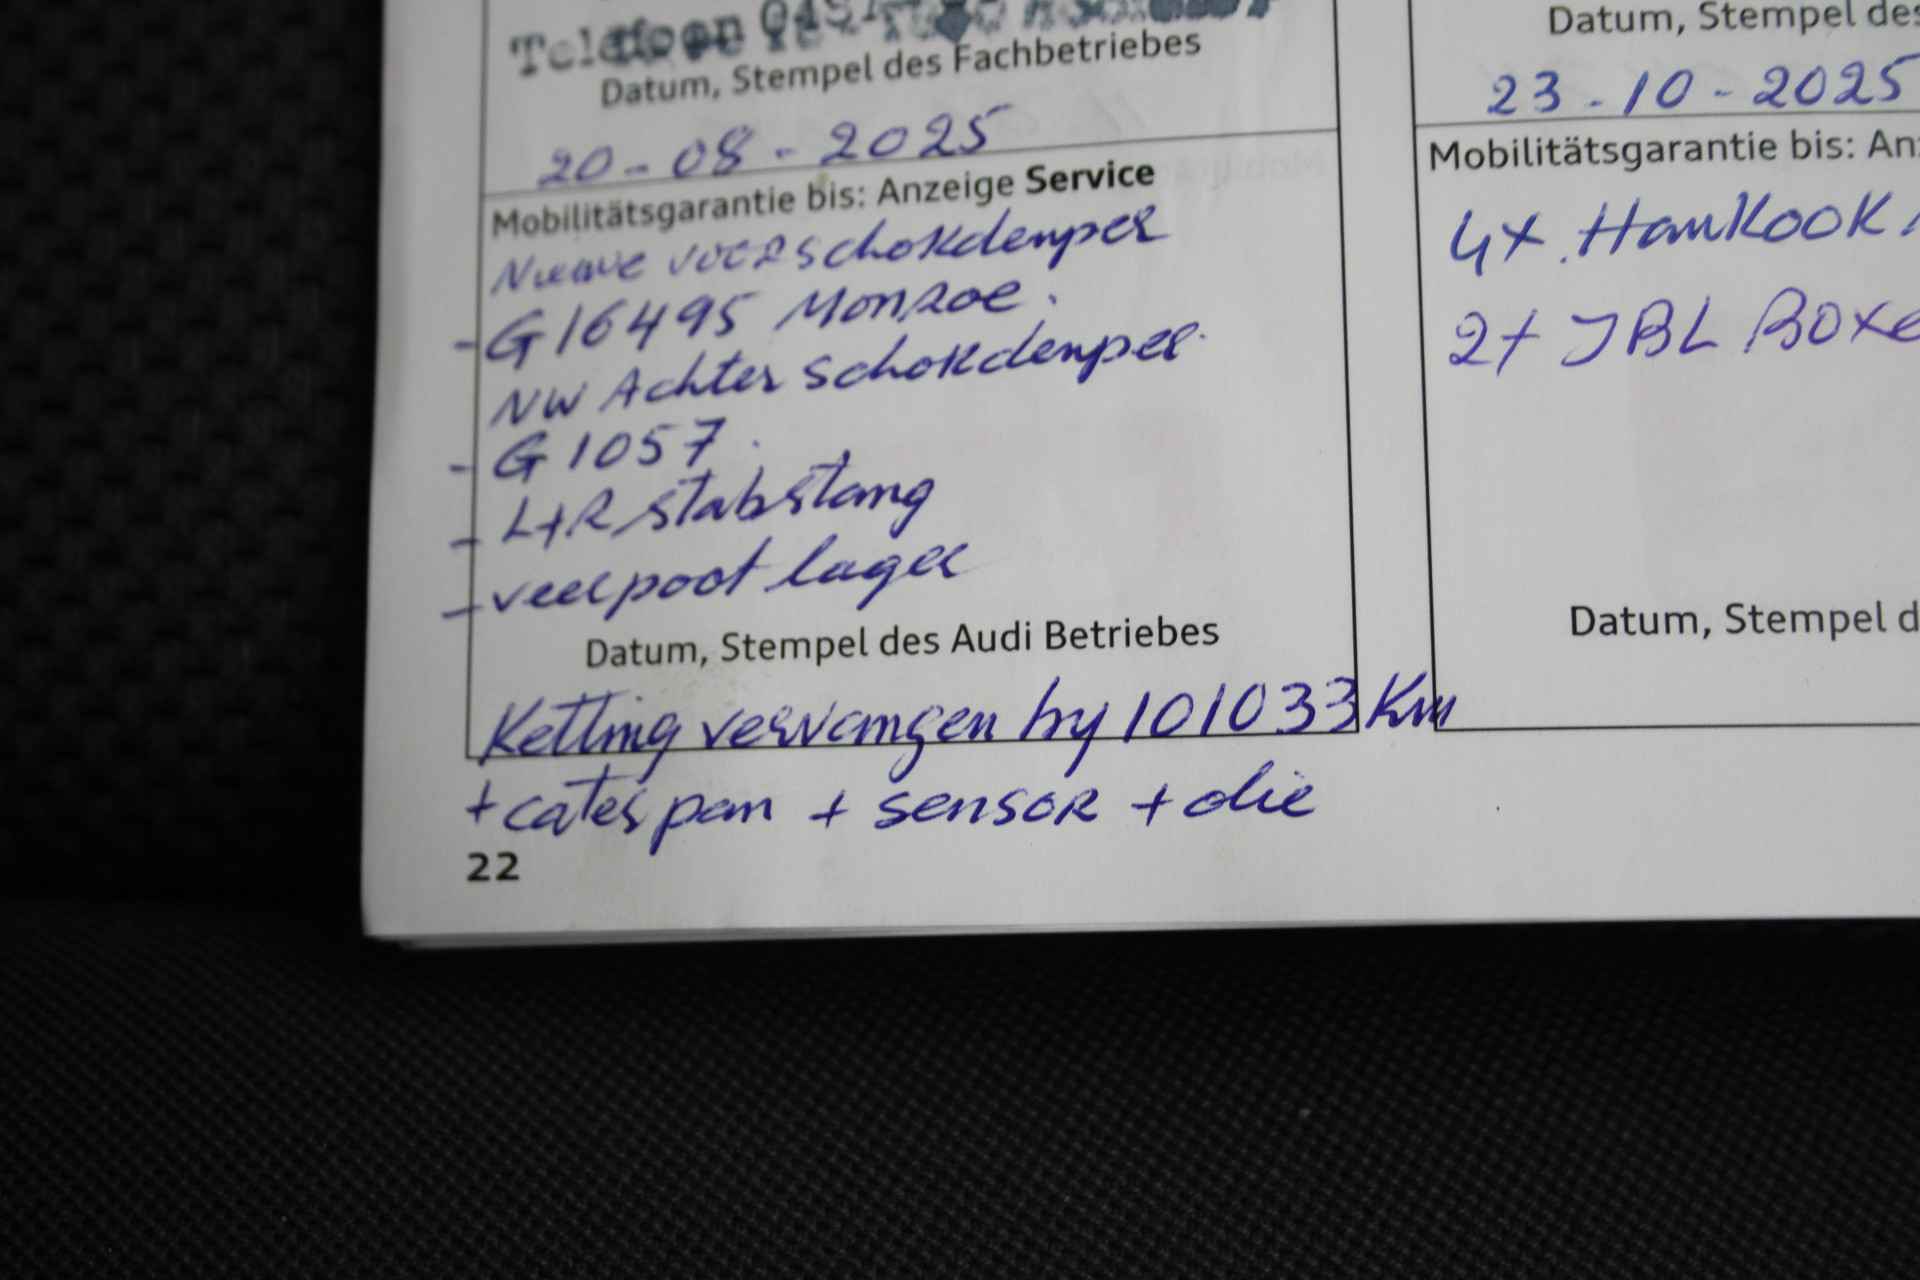 Telefoon
Datum, Stempel des Fachbetriebes
20-08-2025
Mobilitätsgarantie bis: Anzeige Service
Nieuwe voorschokdemper
- G16495 Monroe.
NW Achter schokdemper.
- G1057.
- L+R stabstang
- veerpoot lager
Datum, Stempel des Audi Betriebes
Ketting vervangen by 101033 Km
+ cater pan + sensor + olie
22
Datum, Stempel des
23-10-2025
Mobilitätsgarantie bis: An
4x Hankook
2x JBL Boxe
Datum, Stempel d